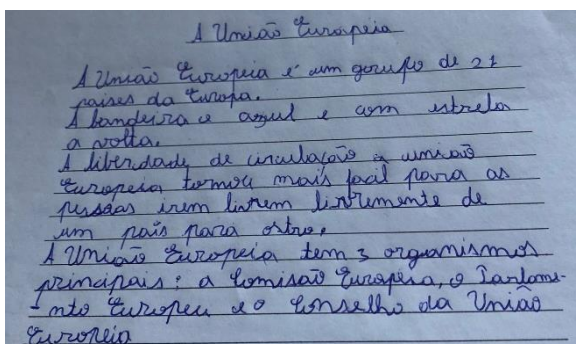 A União Europeia
A União Europeia é um gorupo de 27
países da Europa.
A bandeira e azul e com estrelas
a volta.
A liberdade de circulação a união
Europeia tornou mais facil para as
pessoas irem livrem livremente de
um país para ostro.
A União Europeia tem 3 organismos
principais: a Comisão Europeia, o Parlame-
-nto Europeu e o Conselho da União
Europeia